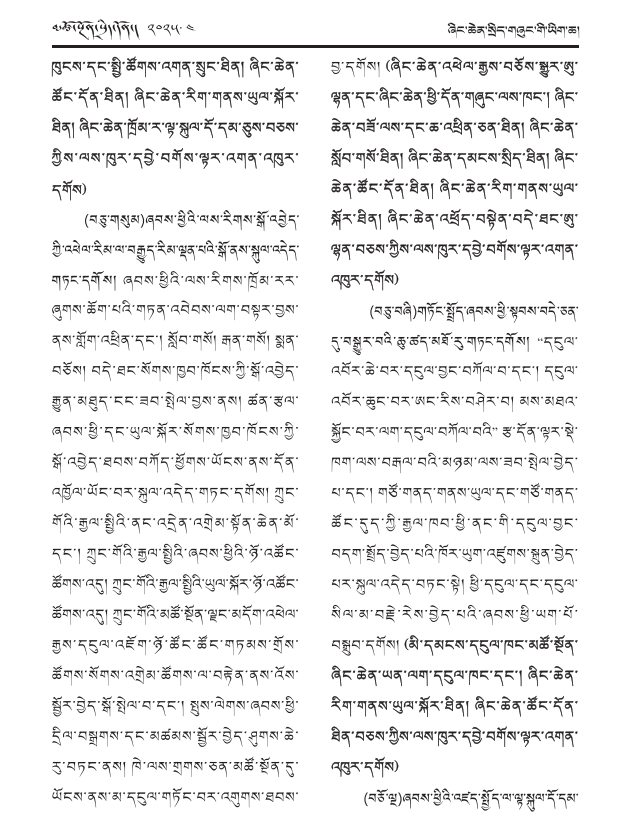 ༢༠༢༥.༤
ཞིང་ཆེན་སྲིད་གཞུང་གི་ཡིག་ཆ།
ཁུངས་དང་སྤྱི་ཚོགས་འགན་སྲུང་ཐིན། ཞིང་ཆེན་
ཚོང་དོན་ཐིན། ཞིང་ཆེན་རིག་གནས་ཡུལ་སྐོར་
ཐིན། ཞིང་ཆེན་ཁྲོམ་ར་ལྟ་སྐུལ་དོ་དམ་ཅུས་བཅས་
ཀྱིས་ལས་ཁུར་དབྱེ་བགོས་ལྟར་འགན་འཁུར་
དགོས)
(བཅུ་གསུམ)ཞབས་ཕྱིའི་ལས་རིགས་སྒོ་འབྱེད་
ཀྱི་འཕེལ་རིམ་ལ་བརྒྱུད་རིམ་ལྡན་པའི་སྒོ་ནས་སྐུལ་འདེད་
གཏང་དགོས། ཞབས་ཕྱིའི་ལས་རིགས་ཁྲོམ་རར་
ཞུགས་ཆོག་པའི་གཏན་འབེབས་ལག་བསྟར་བྱས་
ནས་གློག་འཕྲིན་དང་། སློབ་གསོ། རྒན་གསོ། སྨན་
བཅོས། བདེ་ཐང་སོགས་ཁྱབ་ཁོངས་ཀྱི་སྒོ་འབྱེད་
རྒྱུན་མཐུད་ངང་ཟབ་སྤེལ་བྱས་ནས། ཚན་རྩལ་
ཞབས་ཕྱི་དང་ཡུལ་སྐོར་སོགས་ཁྱབ་ཁོངས་ཀྱི་
སྒོ་འབྱེད་ཐབས་བཀོད་ཕྱོགས་ཡོངས་ནས་དོན་
འཁྱོལ་ཡོང་བར་སྐུལ་འདེད་གཏང་དགོས། ཀྲུང་
གོའི་རྒྱལ་སྤྱིའི་ནང་འདྲེན་འགྲེམ་སྟོན་ཆེན་མོ་
དང་། ཀྲུང་གོའི་རྒྱལ་སྤྱིའི་ཞབས་ཕྱིའི་ཉོ་འཚོང་
ཚོགས་འདུ། ཀྲུང་གོའི་རྒྱལ་སྤྱིའི་ཡུལ་སྐོར་ཉོ་འཚོང་
ཚོགས་འདུ། ཀྲུང་གོའི་མཚོ་སྔོན་ལྗང་མདོག་འཕེལ་
རྒྱས་དངུལ་འཇོག་ཉོ་ཚོང་ཚོང་གཏམས་གྲོས་
ཚོགས་སོགས་འགྲེམ་ཚོགས་ལ་བརྟེན་ནས་འོས་
སྦྱོར་བྱེད་སྒོ་སྤེལ་བ་དང་། སྤུས་ལེགས་ཞབས་ཕྱི་
དྲིལ་བསྒྲགས་དང་མཚམས་སྦྱོར་བྱེད་ཤུགས་ཆེ་
རུ་བཏང་ནས། ཁེ་ལས་གྲགས་ཅན་མཚོ་སྔོན་དུ་
ཡོངས་ནས་མ་དངུལ་གཏོང་བར་འགུགས་ཐབས་
བྱ་དགོས། (ཞིང་ཆེན་འཕེལ་རྒྱས་བཅོས་སྒྱུར་ཨུ་
ལྷན་དང་ཞིང་ཆེན་ཕྱི་དོན་གཞུང་ལས་ཁང་། ཞིང་
ཆེན་བཟོ་ལས་དང་ཆ་འཕྲིན་ཅན་ཐིན། ཞིང་ཆེན་
སློབ་གསོ་ཐིན། ཞིང་ཆེན་དམངས་སྲིད་ཐིན། ཞིང་
ཆེན་ཚོང་དོན་ཐིན། ཞིང་ཆེན་རིག་གནས་ཡུལ་
སྐོར་ཐིན། ཞིང་ཆེན་འཕྲོད་བསྟེན་བདེ་ཐང་ཨུ་
ལྷན་བཅས་ཀྱིས་ལས་ཁུར་དབྱེ་བགོས་ལྟར་འགན་
འཁུར་དགོས)
(བཅུ་བཞི)གཏོང་སྤྲོད་ཞབས་ཕྱི་སྟབས་བདེ་ཅན་
དུ་བསྒྱུར་བའི་ཆུ་ཚད་མཐོ་རུ་གཏང་དགོས། “དངུལ་
འབོར་ཆེ་བར་དངུལ་བྱང་བཀོལ་བ་དང་། དངུལ་
འབོར་ཆུང་བར་ཨང་རིས་བཤེར་བ། མས་མཐའ་
སྐྱོང་བར་ལག་དངུལ་བཀོལ་བའི” རྩ་དོན་ལྟར་སྡེ་
ཁག་ལས་བརྒལ་བའི་མཉམ་ལས་ཟབ་སྤེལ་བྱེད་
པ་དང་། གཙོ་གནད་གནས་ཡུལ་དང་གཙོ་གནད་
ཚོང་དུད་ཀྱི་རྒྱལ་ཁབ་ཕྱི་ནང་གི་དངུལ་བྱང་
བདག་སྤྲོད་བྱེད་པའི་ཁོར་ཡུག་འཛུགས་སྐྲུན་བྱེད་
པར་སྐུལ་འདེད་བཏང་སྟེ། ཕྱི་དངུལ་དང་དངུལ་
སིལ་མ་བརྗེ་རེས་བྱེད་པའི་ཞབས་ཕྱི་ཡག་པོ་
བསྒྲུབ་དགོས། (མི་དམངས་དངུལ་ཁང་མཚོ་སྔོན་
ཞིང་ཆེན་ཡན་ལག་དངུལ་ཁང་དང་། ཞིང་ཆེན་
རིག་གནས་ཡུལ་སྐོར་ཐིན། ཞིང་ཆེན་ཚོང་དོན་
ཐིན་བཅས་ཀྱིས་ལས་ཁུར་དབྱེ་བགོས་ལྟར་འགན་
འཁུར་དགོས)
(བཅོ་ལྔ)ཞབས་ཕྱིའི་འཛད་སྤྱོད་ལ་ལྟ་སྐུལ་དོ་དམ་